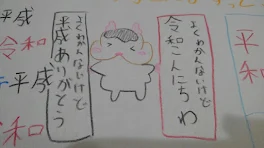 平
和
よくわかんないけど
令和こんにちわ
よくわかんないけど
平成ありがとう
平成
令和
平成
和